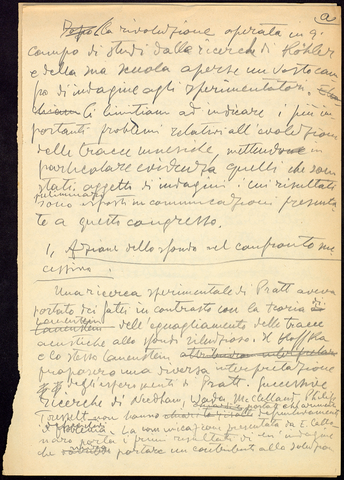 a
la rivoluzione operata in q.
campo di studi dalla ricerche di Köhler
e della sua scuola aperse un vasto cam
po di indagine agli sperimentatori.
Ci limitiamo ad indicare i più im
portanti problemi relativi all'evoluzione
delle tracce mnesiche, mettendo in
particolare evidenza quelli che sono
stati oggetto di indagini i cui risultati
preliminari
sono esposti in comunicazioni presenta
te a questo congresso.
1, Azione dello sfondo nel confronto suc
cessivo.
Una ricerca sperimentale di Pratt aveva
portato dei fatti in contrasto con la teoria di
Lauenstein dell'eguagliamento delle tracce
acustiche allo sfondo silenzioso. Il Koffka
e lo stesso Lauenstein
proposero una diversa interpretazione
degli esperimenti di Pratt. Successive
ricerche di Needham, Wada, McClelland, Philip,
Tresselt non hanno
. La comunicazione presentata da E.
porta i primi risultati di un'indagine
che portare un contributo alla soluzione